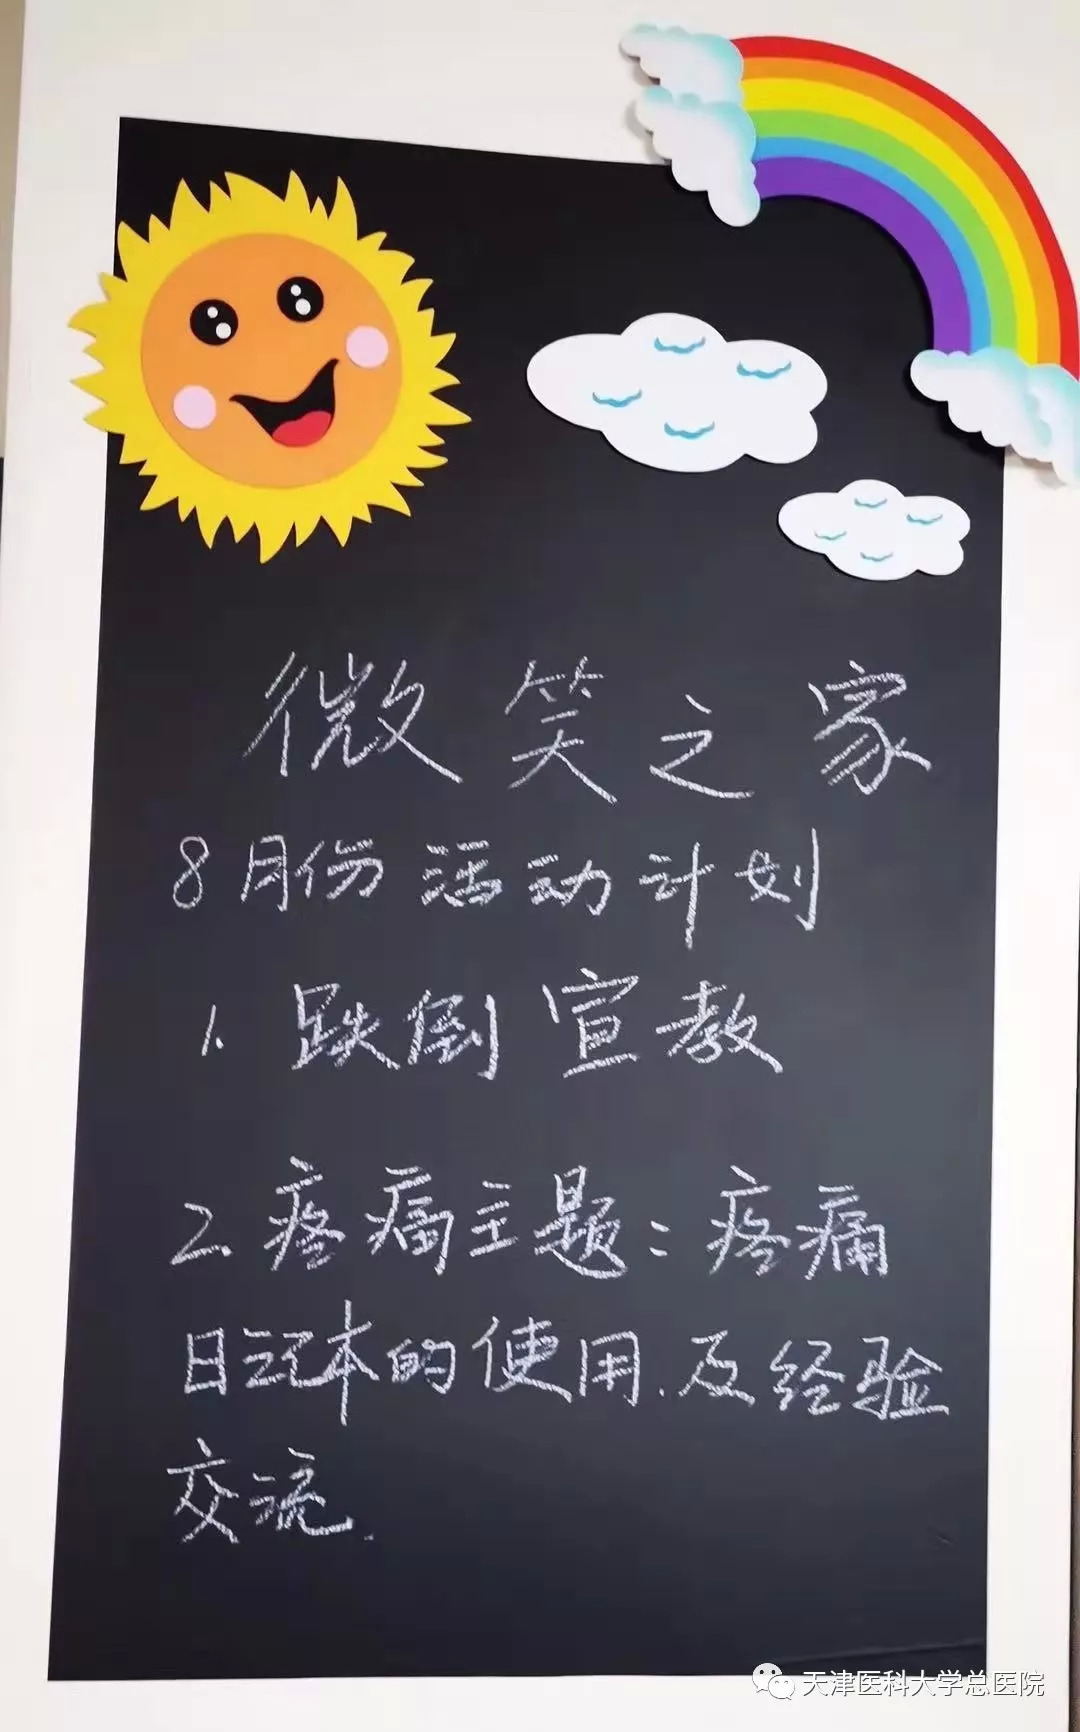 微笑之家
8月份活动计划
1. 跌倒宣教
2. 疼痛主题：疼痛
日记本的使用.及经验
交流.
天津医科大学总医院